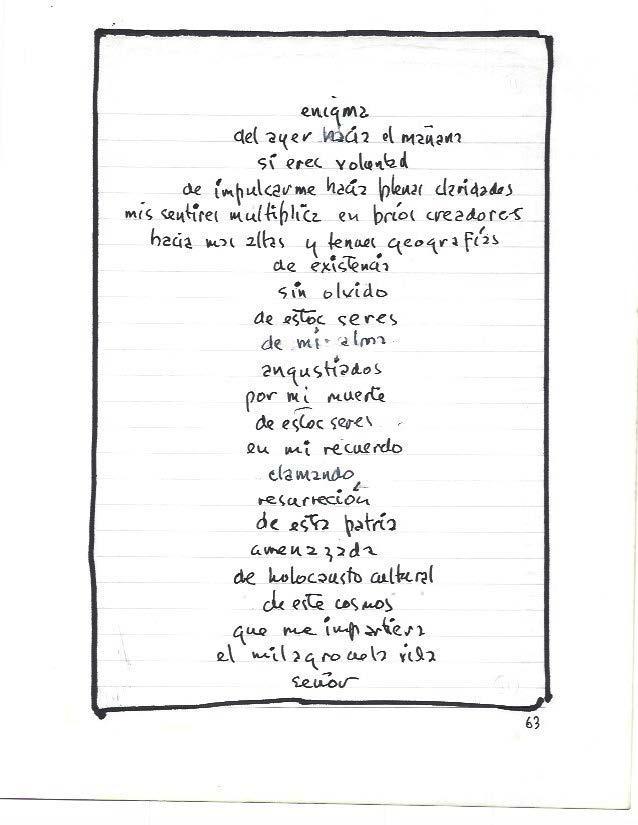 enigma
del ayer hacia el mañana
si eres voluntad
de impulsarme hacia plenas claridades
mis sentires multiplica en bríos creadores
hacia mas altas y tenues geografías
de existencia
sin olvido
de estos seres
de mi alma
angustiados
por mi muerte
de estos seres
en mi recuerdo
clamando
resurreción
de esta patria
amenazada
de holocausto cultural
de este cosmos
que me impartiera
el milagro de la vida
señor
63